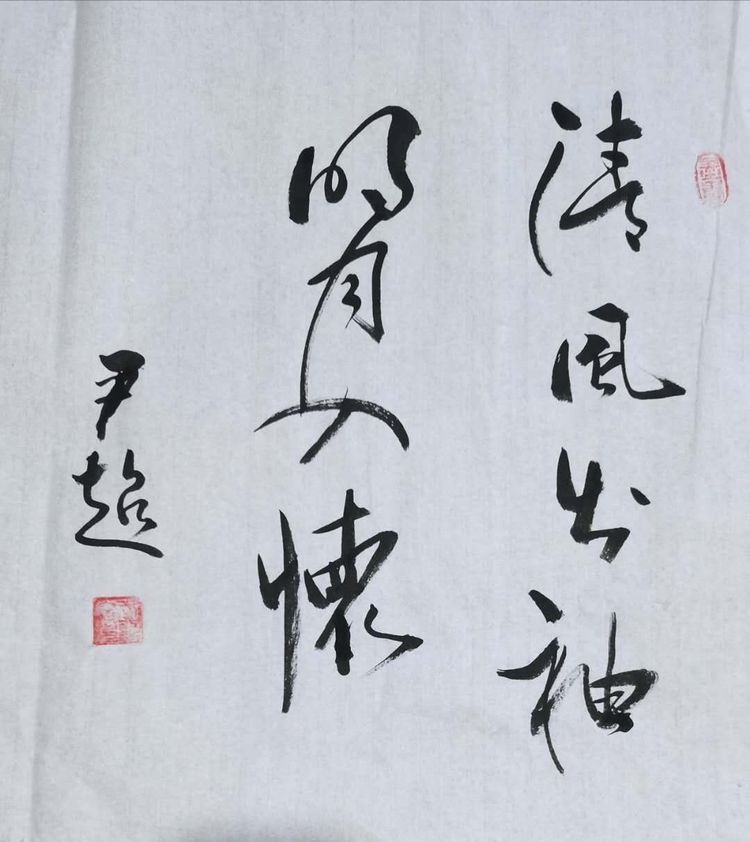 清風出袖
明月入懷
尹超